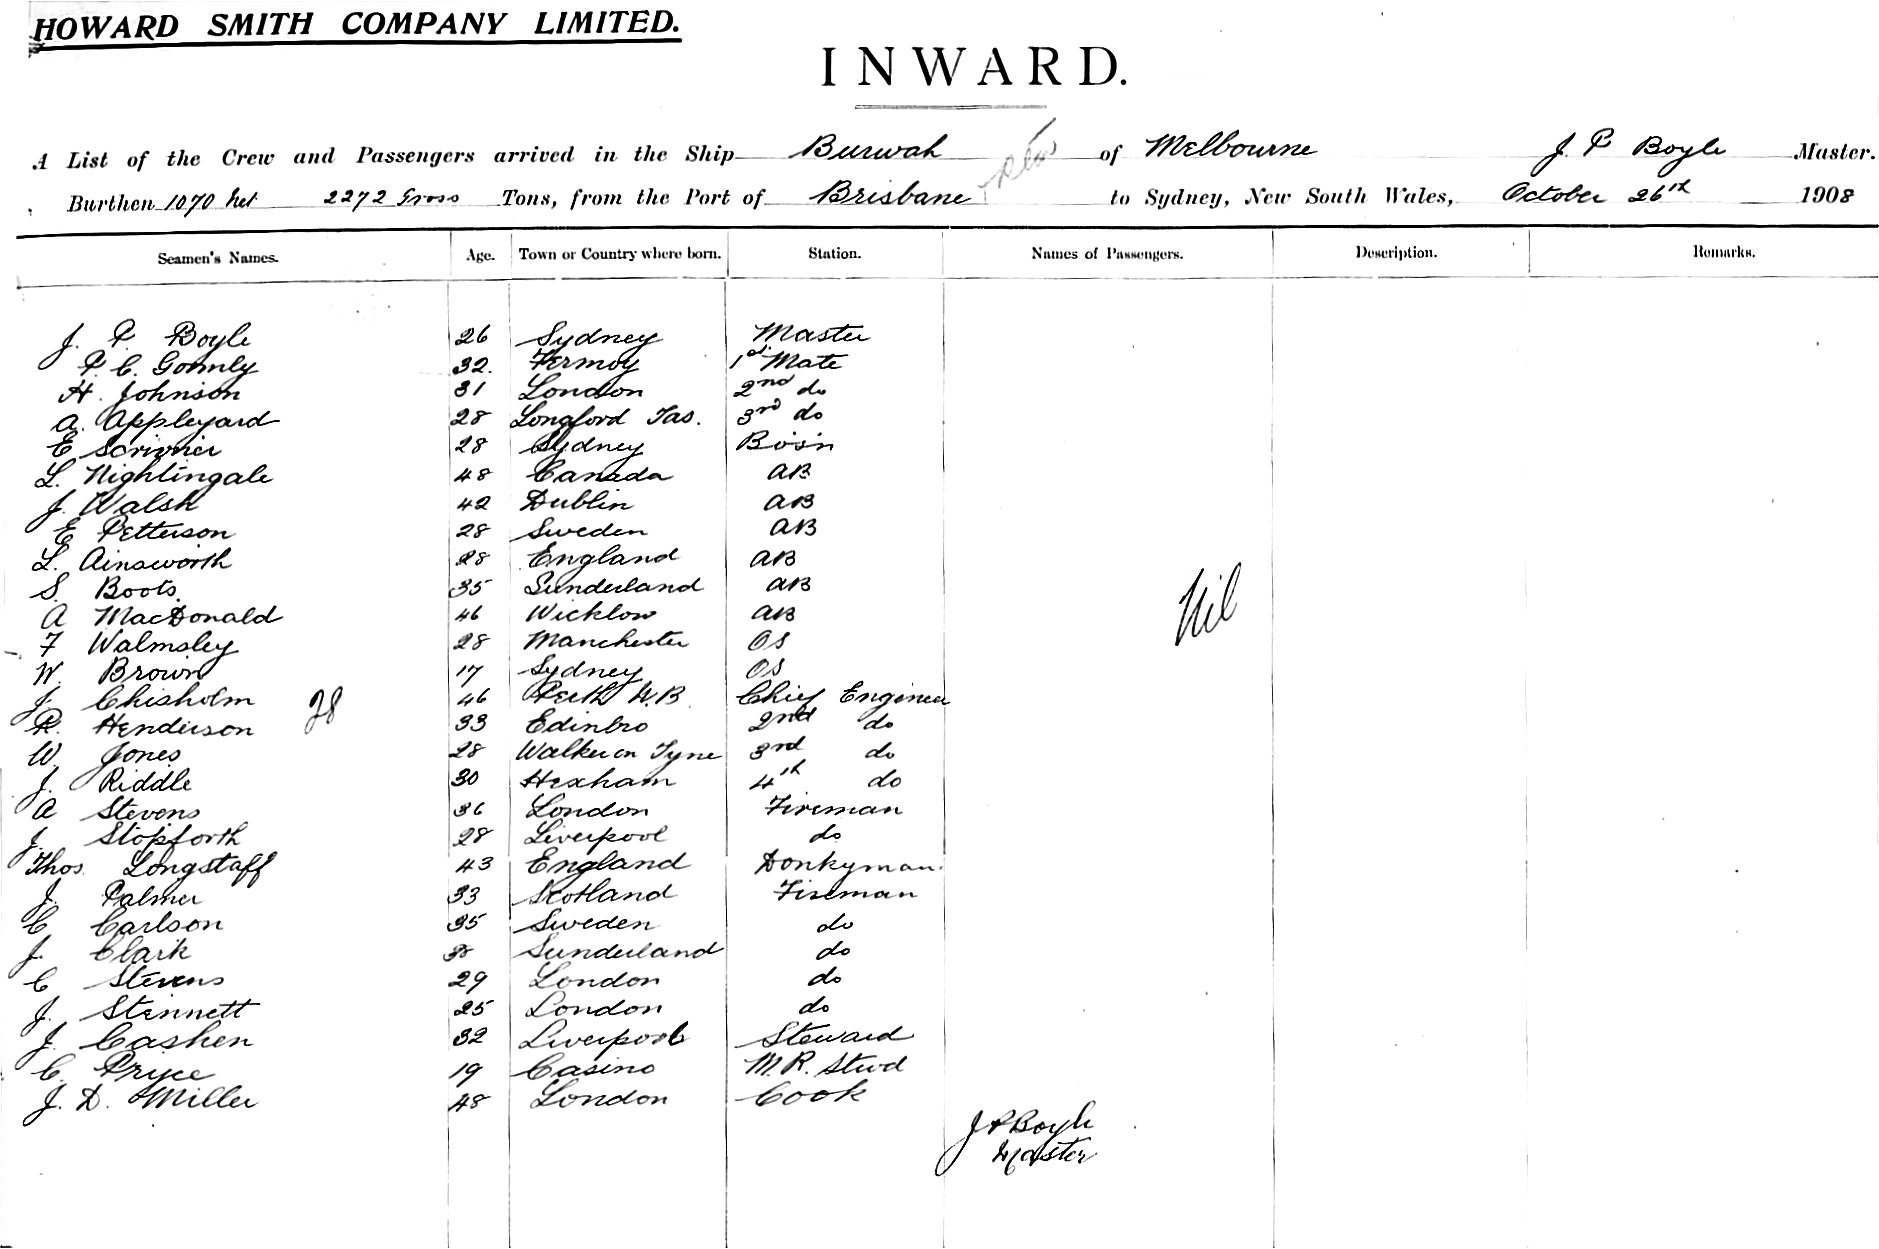 HOWARD SMITH COMPANY LIMITED.
INWARD.
A List of the Crew and Passengers arrived in the Ship Burwah of Melbourne J P Boyle Master.
Burthen 1070 Net 2272 Gross Tons, from the Port of Brisbane to Sydney, New South Wales, October 26th 1908
Seamen's Names. Age. Town or Country where born. Station. Names of Passengers. Description. Remarks.
J. P. Boyle 26 Sydney Master
P. C. Gormly 32. Fermoy 1st Mate
H. Johnson 31 London 2nd do
A. Appleyard 28 Longford Tas. 3rd do
E Scrivner 28 Sydney Bo's'n
L. Nightingale 48 Canada AB
J. Walsh 42 Dublin AB
E Petterson 28 Sweden AB
L. Ainsworth 28 England AB
S. Boots. 35 Sunderland AB
A MacDonald 46 Wicklow AB
F Walmsley 28 Manchester OS
Nil
W. Brown 17 Sydney OS
J. Chisholm 46 Perth N.B. Chief Engineer
R. Henderson 28 33 Edinbro 2nd do
W. Jones 28 Walker on Tyne 3rd do
J. Riddle 30 Hexham 4th do
A Stevens 36 London Fireman
J. Stopforth 28 Liverpool do
Thos. Longstaff 43 England Donkyman.
J. Palmer 33 Scotland Fireman
C Carlson 35 Sweden do
J. Clark Sunderland do
C Stevens 29 London do
J. Stennett 25 London do
J Cashen 32 Liverpool Steward
C. Pryce 19 Casino M.R. Stwd
J. D. Miller 48 London Cook
J P Boyle
Master